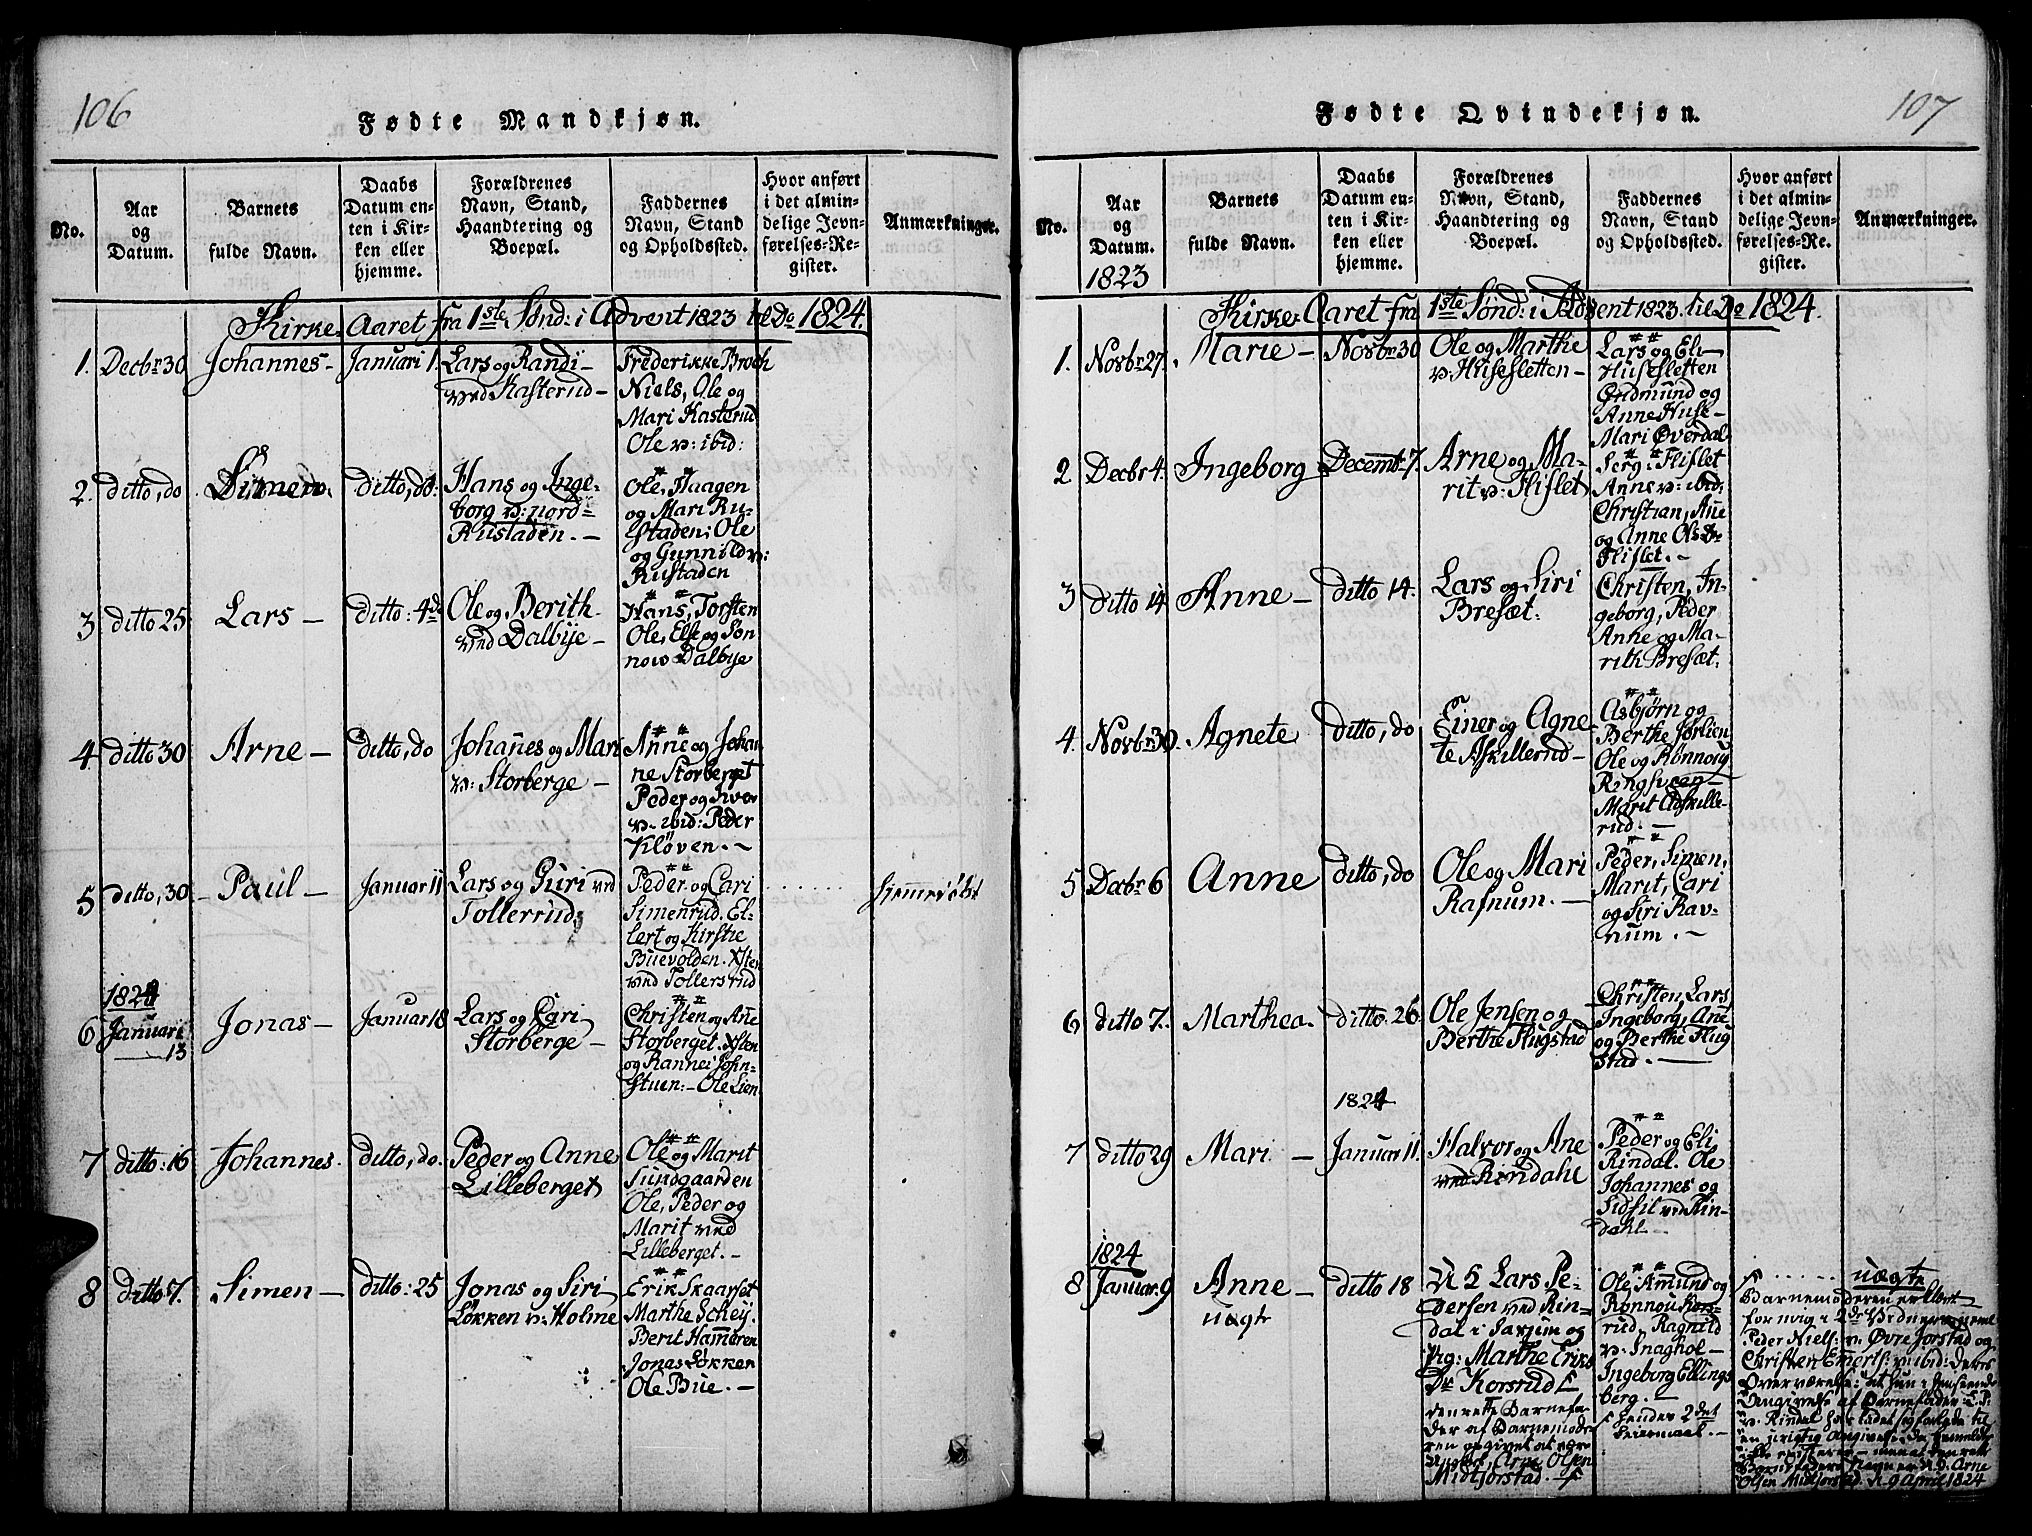 106
Fødte Mandkjøn.
No.
Aar
og
Datum.
Barnets
fulde Navn.
Daabs
Datum en-
ten i Kir-
ken eller
hjemme.
Forældrenes
Navn, Stand,
Haandtering og
Boepæl.
Faddernes
Navn, Stand
og Opholdssted.
Hvor anført
i det almin-
delige Jevn-
førelses-Re-
gister.
Anmærkninger.
Kirke Aaret fra 1ste Sønd: i Advent 1823 til Do 1824.
1. Decbr 30 Johannes - Januari 1.
Lars og Randi -
ved Kasterud -
Frederikke Broch
Niels, Ole og
Mari Kasterud
Ole v: ibid:
2. ditto, do Simen ditto, do:
Hans og Inge-
borg v: nord-
Rustaden. -
Ole, Haagen
og Mari Ru-
staden; Ole
og Gunnild v:
Rustaden
3 ditto 25 Lars - ditto: 4de
Ole og Berith
ved Dalbye -
Hans, Torsten
Ole, Else og Søn
now Dalbye
4 ditto 30 Arne - ditto, do
Johañes og Mari
v: Storberge -
Añe og Johan
ne Storberget
Peder og
v. ibid: Peder
Kløven. -
5 ditto, 30 - Paul - Januar 11
Lars og Guri ved
Tollerrud
Peder og Cari
Simenrud. El-
lert og Kirstie
Buevolden. Xsten
ved Tollersrud
Hjemmedøbt
1824
6 Januari 13 Jonas - Januar 18
Lars og Cari
Storberge -
Christen og Añe
Storberget. Xsten
og Rannei John-
stuen: - Ole Lien
7 ditto: 16 Johannes. ditto, do.
Peder og Anne
Lilleberget
Ole og Marit
Sundgaarden
Ole, Peder og
Marit ved
Lilleberget. -
8 ditto 7. Simen - ditto: 25
Jonas og Siri
Løkken v: Holme
Erik Skaarset
Marthe Scheÿ.
Berit Ham̃eren
Jonas Løkken
Ole Bue. -
107
Fødte Qvindekjøn.
No.
Aar
og
Datum.
1823
Barnets
fulde Navn.
Daabs
Datum en-
ten i Kir-
ken eller
hjemme.
Forældrenes
Navn, Stand,
Haandtering og
Boepæl.
Faddernes
Navn, Stand
og Opholdssted.
Hvor anført
i det almin-
delige Jevn-
førelses-Re-
gister.
Anmærkninger.
Kirke-Aaret fra 1ste Sønd: i Advent 1823 til Do 1824.
1. Novbr 27. Marie - Novbr 30
Ole og Marthe
v: Husesletten -
Lars og Eli
Husesletten
Gudmund og
Anne Huse -
Mari Øverdal
2 Decbr 4. Ingeborg Decembr 7.
Arne og Ma-
rit v: Flislet
Serg: Flislet
Anne v: ibid;
Christian, Añe
og Anne Ols Dr
Flislet. -
3 ditto 14 Anne - ditto 14.
Lars og Siri
Bresæt.
Christen, In-
geborg, Peder
Anne og Ma-
rith Bresæt.
4. Novbr 30. Agnete ditto, do
Einer og Agne-
te Askillerud -
Asbjørn og
Berthe Jørlien
Ole og Rønnoug
Ringsveen
Marit Adskille-
rud. -
5 Decbr 6 Anne ditto, do
Ole og Mari
Rafnum. -
Peder, Simen,
Marit, Cari
og Siri Rav-
num. -
6 ditto 7. Marthea. ditto: 26
Ole Jensen og
Berthe Flugstad
Christen, Lars
Ingeborg, Añe
og Berthe Flug
stad. -
1824
7 ditto 29 Mari - Januari 11.
Halvor og Ane
ved Rindahl
Peder og Eli
Rindal. Ole
Johannes og
Sidsil ved Rin-
dahl -
1824
8 Januar. 9 Anne - ditto 18
uægte
Lars Pe-
dersen ved Rin-
dal i og
Pig: Marthe Eriks
Dr Korsrud
den rette Barnefa-
der af Barnemode-
ren angivet at være
Arne Olsen
Midtjørstad. -
Ole Amund og
Rønnou Kors-
rud. Ragnild
v:
Ingeborg Ellings
berg. -
hendes 2det
Leiermaal. -
uægte
Barnemoderen erklæret
for mig i 2de Vidners
Peder Niels: v: Øvre Jorstad og
Christen v: ibid: deres
Overværelse: at hun i henseende
Angivelse af Barnefader L. P.
v. Rindal har ladet sig forlede til
en urigtig Angivelse
Barnefaders Navn er Arne
Olsen Midtjørstad. d. 9 April 1824